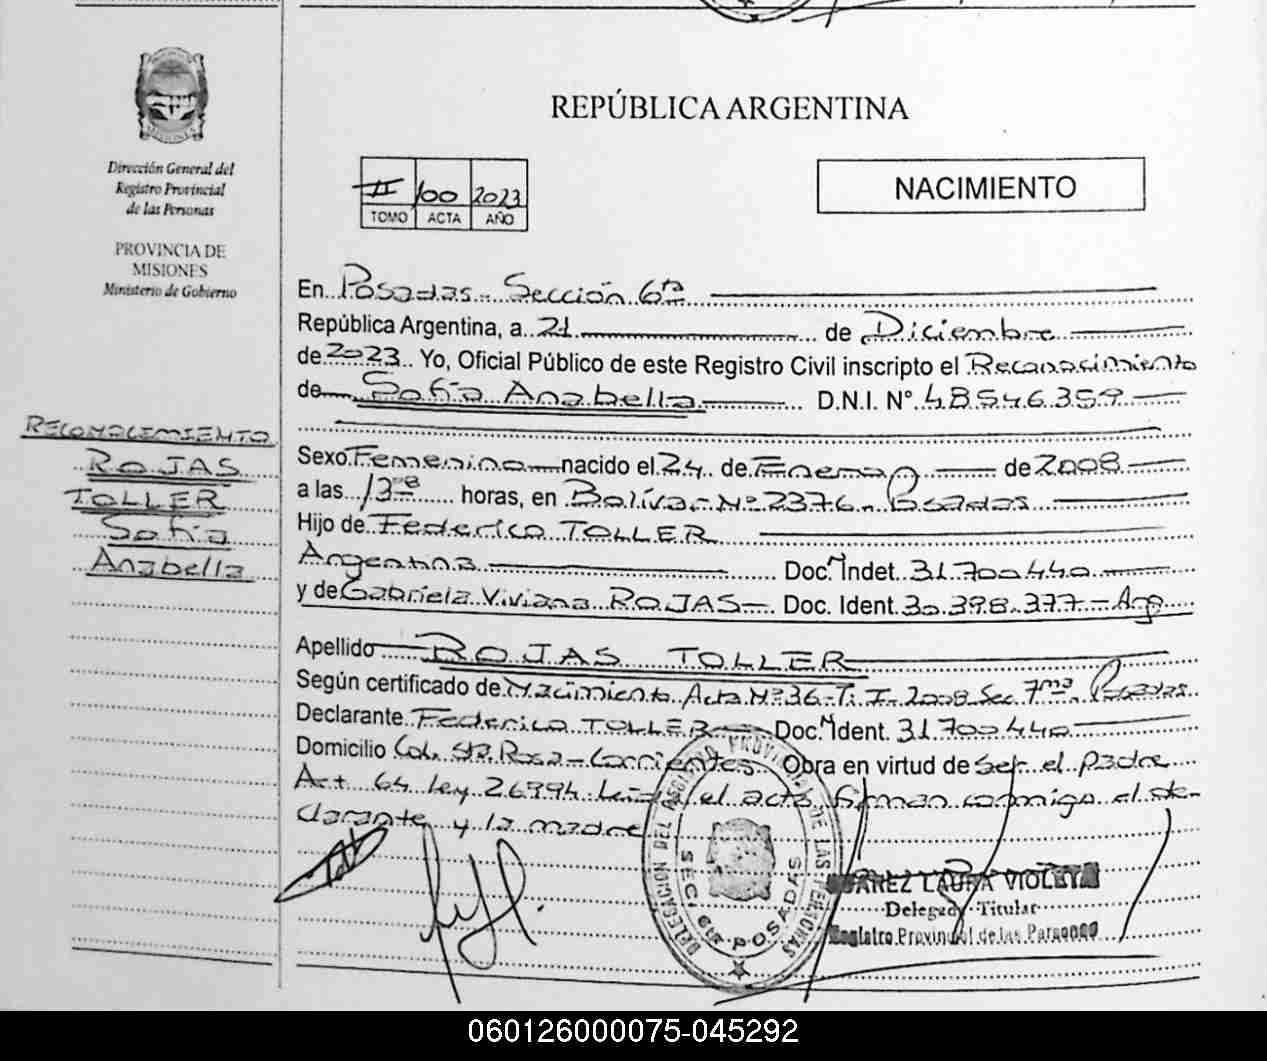 REPÚBLICA ARGENTINA
MISIONES
Dirección General del
Registro Provincial
de las Personas
PROVINCIA DE
MISIONES
Ministerio de Gobierno
II 100 2023
TOMO ACTA AÑO
NACIMIENTO
En Posadas - Sección 6ta
República Argentina, a 21 de Diciembre
de 2023 Yo, Oficial Público de este Registro Civil inscripto el Reconocimiento
de Sofía Anabella D.N.I. N° 48.546.359
RECONOCIMIENTO
ROJAS
TOLLER
Sofía
Anabella
Sexo Femenino nacido el 24 de Enero de 2008
a las 13 horas, en Bolívar Nº 2376 - Posadas
Hijo de Federico TOLLER
Argentina Doc. N Indet. 31.700.440
y de Gabriela Viviana ROJAS - Doc. Ident. 30.398.377 - Arg
Apellido ROJAS TOLLER
Según certificado de Nacimiento Acta Nº 36 - T. I - 2008 Sec 7ma - Posadas
Declarante Federico TOLLER Doc. N Ident. 31.700.440
Domicilio Col. Sta Rosa - Corrientes Obra en virtud de Ser el padre
Art 64 Ley 26994 Leída el acta firman conmigo el de-
clarante y la madre
DELEGACIÓN DEL REGISTRO PROVINCIAL DE LAS PERSONAS
SECC. 6ta POSADAS
LAURA VIOLETA
Delegada Titular
Registro Provincial de las Personas
060126000075-045292